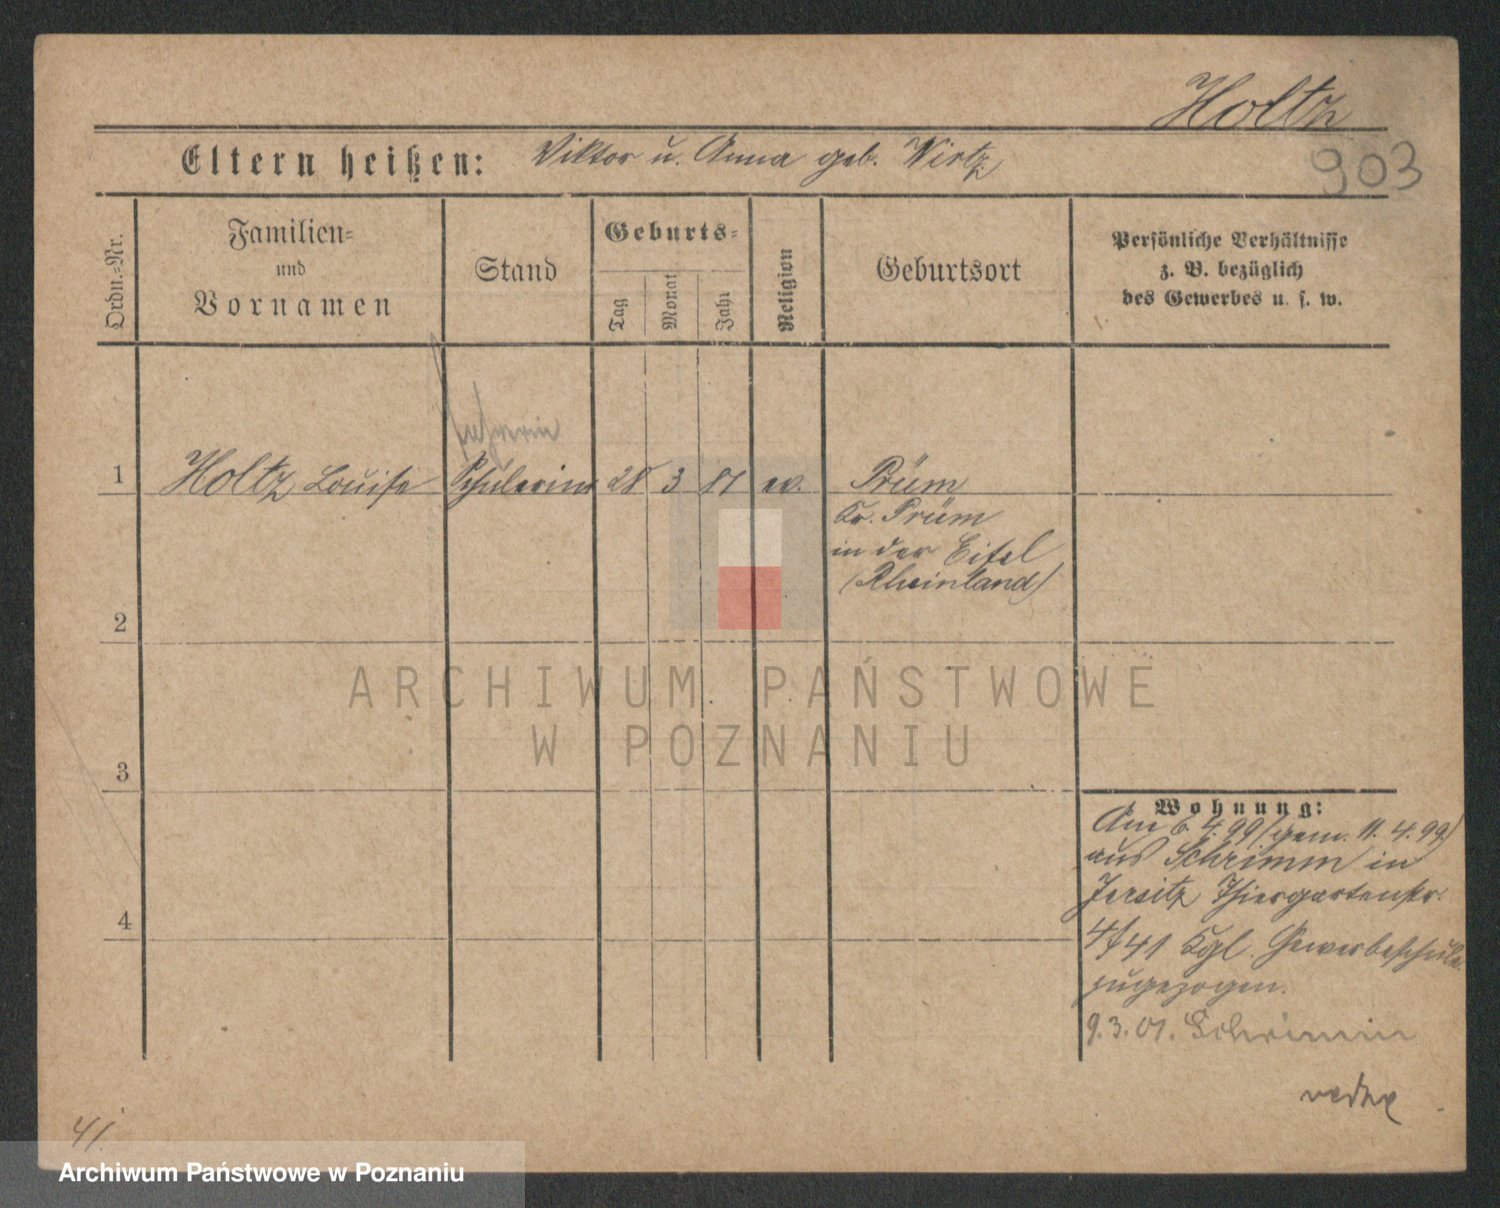 Holtz
Eltern heißen: Viktor u. Anna geb. Wirtz
903
Ordn.=Nr.
Familien=
und
Vornamen
Stand
Geburts=
Tag
Monat
Jahr
Religion
Geburtsort
Persönliche Verhältnisse
z. B. bezüglich
des Gewerbes u. s. w.
1 Holtz Louise Schülerin 28 3 81 ev. Prüm
Kr. Prüm
in der Eifel
(Rheinland)
2
ARCHIWUM PAŃSTWOWE
W POZNANIU
3
Wohnung:
Am 6. 4. 99 (gem. 11. 4. 99)
aus Schrimm in
Jersitz Thiergartenstr.
4/41 Kgl. Gewerbeschule
zugezogen.
4
9. 3. 01. Schrimm
41.
Archiwum Państwowe w Poznaniu